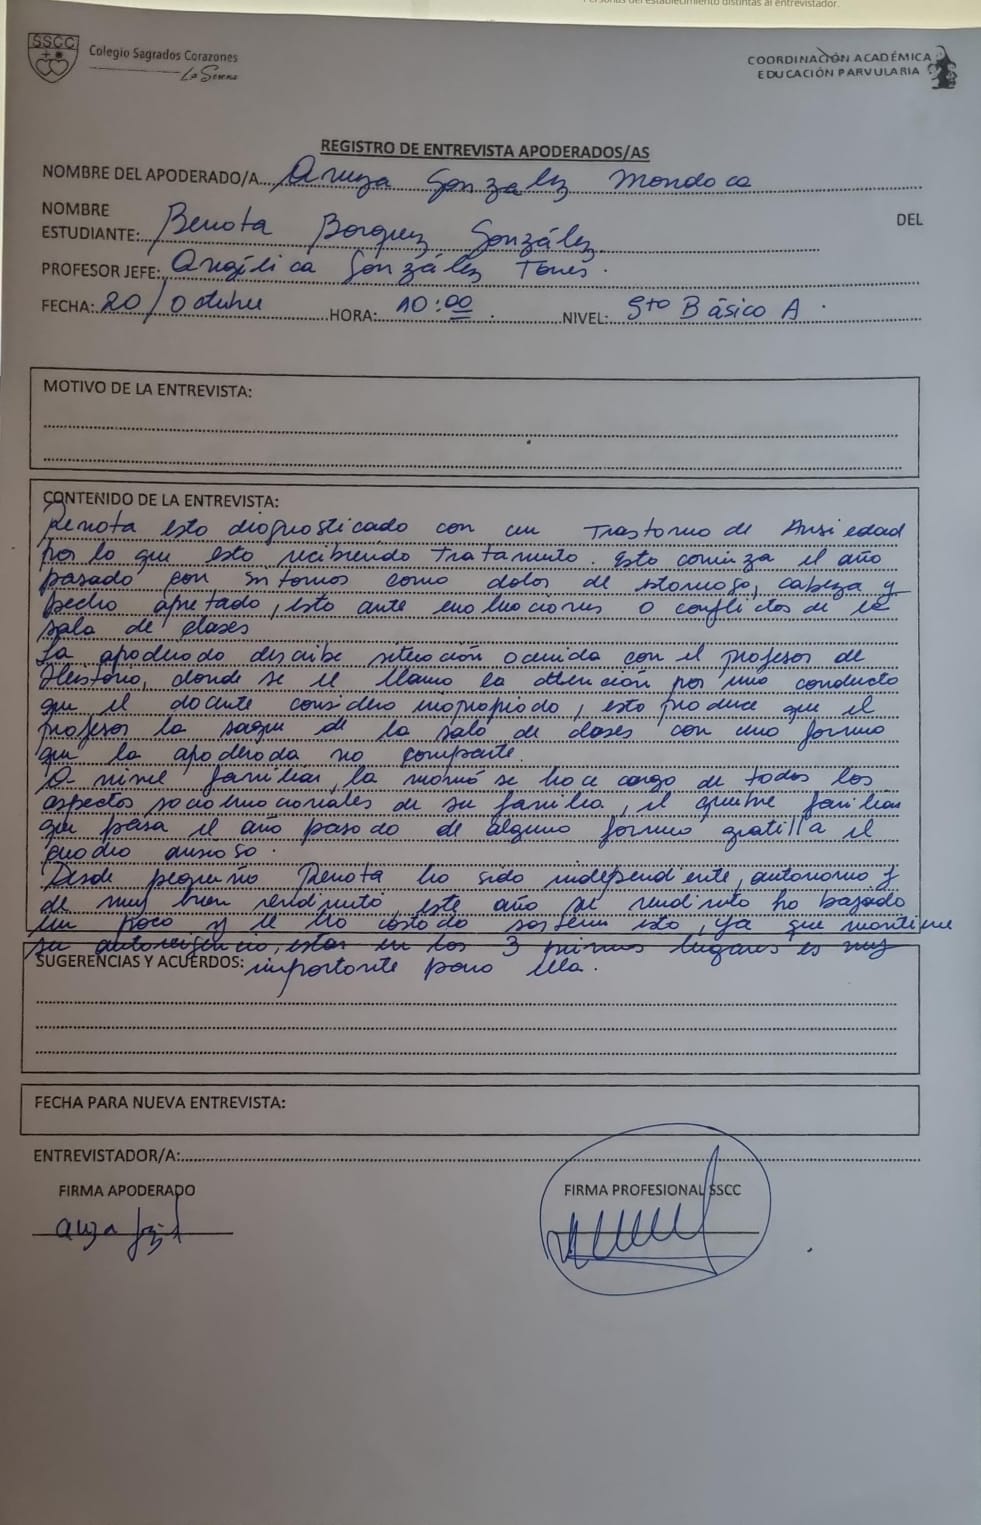 Personas del establecimiento distintas al entrevistador.
SSCC
Colegio Sagrados Corazones
La Serena
COORDINACIÓN ACADÉMICA
EDUCACIÓN PARVULARIA
REGISTRO DE ENTREVISTA APODERADOS/AS
NOMBRE DEL APODERADO/A González Mondaca
NOMBRE DEL
ESTUDIANTE: Renata Borquez González
PROFESOR JEFE: Angélica González Torres.
FECHA: 20/Octubre HORA: 10:00 NIVEL: 5to Básico A.
MOTIVO DE LA ENTREVISTA:
CONTENIDO DE LA ENTREVISTA:
Renata esta diagnosticada con un Trastorno de Ansiedad
por lo que esta recibiendo tratamiento. Esto comienza el año
pasado con sintomas como dolor de estomago, cabeza y
pecho apretado, esto ante evaluaciones o conflictos de la
sala de clases
La apoderada describe situación ocurrida con el profesor de
Historia, donde se le llama la atención por una conducta
que el docente considera inapropiada, esto produce que el
profesor la saque de la sala de clases con una forma
que la apoderada no comparte.
A nivel familiar, la mamá se hace cargo de todos los
aspectos socioemocionales de su familia, el quiebre familiar
que pasa el año pasado de alguna forma gatilla el
cuadro ansioso.
Desde pequeña Renata ha sido independiente, autonoma y
de muy buen rendimiento este año su rendimiento ha bajado
un poco y le ha costado sostener esto, ya que mantiene
su autoexigencia, estar en los 3 primeros lugares es muy
SUGERENCIAS Y ACUERDOS: importante para ella.
FECHA PARA NUEVA ENTREVISTA:
ENTREVISTADOR/A:
FIRMA APODERADO FIRMA PROFESIONAL SSCC